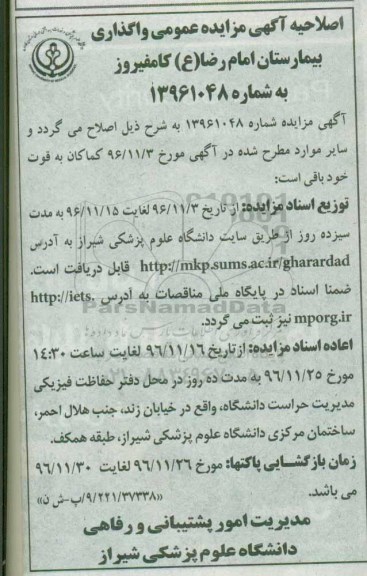 اصلاحیه آگهی مزایده عمومی واگذاری
بیمارستان امام رضا(ع) کامفیروز
به شماره ۱۳۹۶۱۰۴۸
آگهی مزایده شماره ۱۳۹۶۱۰۴۸ به شرح ذیل اصلاح می گردد و
سایر موارد مطرح شده در آگهی مورخ ۹۶/۱۱/۳ کماکان به قوت
خود باقی است:
توزیع اسناد مزایده: از تاریخ ۹۶/۱۱/۳ لغایت ۹۶/۱۱/۱۵ به مدت
سیزده روز از طریق سایت دانشگاه علوم پزشکی شیراز به آدرس
http://mkp.sums.ac.ir/gharardad قابل دریافت است.
ضمنا اسناد در پایگاه ملی مناقصات به آدرس http://iets.
mporg.ir نیز ثبت می گردد.
اعاده اسناد مزایده: از تاریخ ۹۶/۱۱/۱۶ لغایت ساعت ۱۴:۳۰
مورخ ۹۶/۱۱/۲۵ به مدت ده روز در محل دفتر حفاظت فیزیکی
مدیریت حراست دانشگاه، واقع در خیابان زند، جنب هلال احمر،
ساختمان مرکزی دانشگاه علوم پزشکی شیراز، طبقه همکف.
زمان بازگشایی پاکتها: مورخ ۹۶/۱۱/۲۶ لغایت ۹۶/۱۱/۳۰
می باشد. «۹/۲۲۱/۳۷۳۳۸/پ-ش ن»
مدیریت امور پشتیبانی و رفاهی
دانشگاه علوم پزشکی شیراز
ParsNamadData